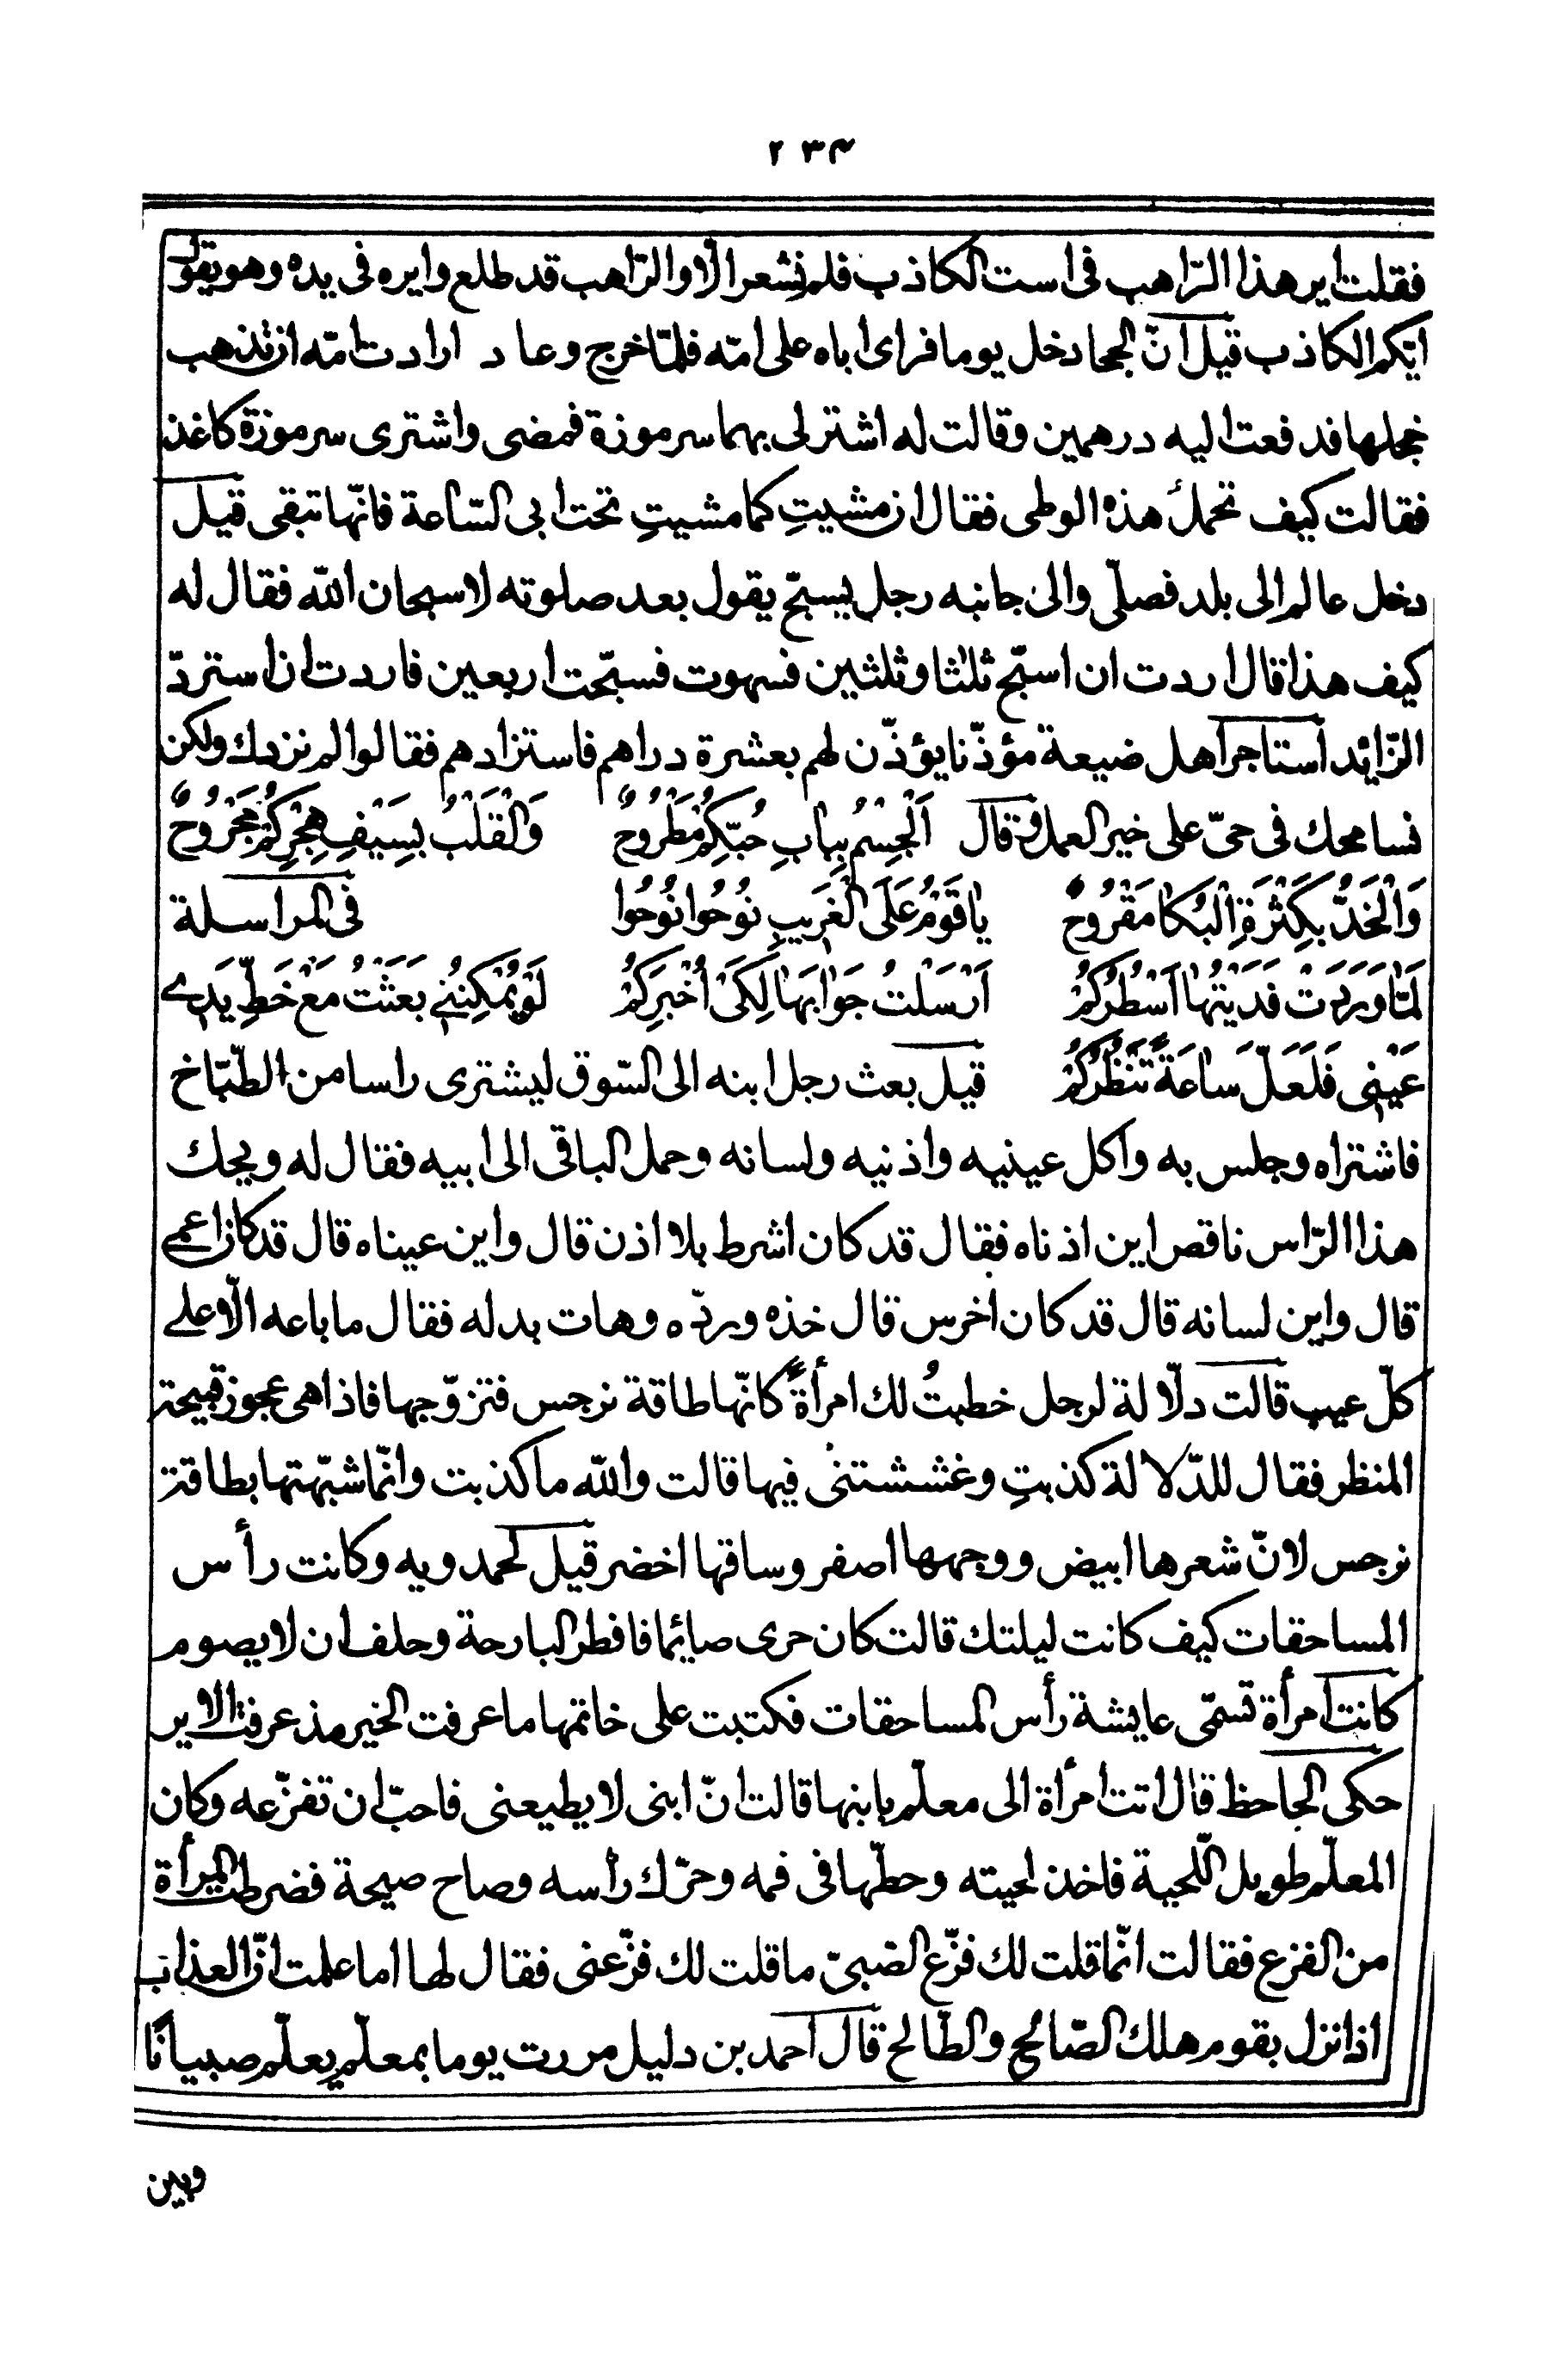 ٢٣٤
فقلت اير هذا الرّاهب فى است الكاذب فلم نشعر الّا والرّاهب قد طلع وايره فى يده وهو يقول
ايّكم الكاذب قيل انّ الجحا دخل يوما فراى اباه على امّه فلمّا خرج وعاد ارادت امّه ان تذهب
خجلها فدفعت اليه درهمين وقالت له اشتر لى بهما سرموزة فمضى واشترى سرموزة كاغذ
فقالت كيف تحمل هذه الوطى فقال ان مشيتِ كما مشيتِ تحت ابى السّاعة فانّها تبقى قيل
دخل عالم الى بلد فصلّى والى جانبه رجل يسبّح يقول بعد صلوته لا سبحان اللّه فقال له
كيف هذا قال اردت ان اسبّح ثلثا وثلثين فسهوت فسبّحت اربعين فاردت ان استردّ
الزّايد استاجر اهل ضيعة مؤذّنا يؤذّن لهم بعشرة دراهم فاستزادهم فقالوا لم نزدك ولكن
نسامحك فى حىّ على خير العمل وقال اَلْجِسْمُ بِبابِ حُبِّكُمْ مَطْرُوحٌ وَالْقَلْبُ بِسَيْفِ هَجْرِكُمْ مَجْرُوحٌ
وَالْخَدُّ بِكَثْرَةِ الْبُكا مَقْرُوحٌ يا قَوْمُ عَلَى الْغَرِيبِ نُوحُوا نُوحُوا فى المراسلة
لَمّا وَرَدَتْ فَدَيْتُها اَسْطُرُكُمْ اَرْسَلْتُ جَوابَها لِكَىْ اُخْبِرَكُمْ لَوْ يُمْكِنُنِي بَعَثْتُ مَعْ خَطِّ يَدِي
عَيْنِى فَلَعَلَّ ساعَةً تَنْظُرُكُمْ قيل بعث رجل ابنه الى السّوق ليشترى راسا من الطّبّاخ
فاشتراه وجلس به واكل عينيه واذنيه ولسانه وحمل الباقى الى ابيه فقال له ويحك
هذا الرّاس ناقص اين اذناه فقال قد كان اشرط بلا اذن قال واين عيناه قال قد كان اعمى
قال واين لسانه قال قد كان اخرس قال خذه وردّه وهات بدله فقال ما باعه الّا على
كلّ عيب قالت دلّالة لرجل خطبتُ لك امرأةً كانّها طاقة نرجس فتزوّجها فاذا هى عجوز قبيحة
المنظر فقال للدّلالة كذبتِ وغششتنى فيها قالت واللّه ما كذبت وانّما شبّهتها بطاقة
نرجس لانّ شعرها ابيض ووجهها اصفر وساقها اخضر قيل لحمدويه وكانت رأس
المساحقات كيف كانت ليلتك قالت كان حرى صايما فافطر البارحة وحلف ان لا يصوم
كانت امرأة تسمّى عايشة رأس المساحقات فكتبت على خاتمها ما عرفت الخير مذ عرفت الاير
حكى الجاحظ قال اتت امرأة الى معلّم بابنها قالت انّ ابنى لا يطيعنى فاحبّ ان تفزّعه وكان
المعلّم طويل اللّحية فاخذ لحيته وحطّها فى فمه وحرّك رأسه وصاح صيحة فضرطت المرأة
من الفزع فقالت انّما قلت لك فزّع الصّبىّ ما قلت لك فزّعنى فقال لها اما علمت انّ العذاب
اذا نزل بقوم هلك الصّالح والطّالح قال احمد بن دليل مررت يوما بمعلّم يعلّم صبيانًا
وبين